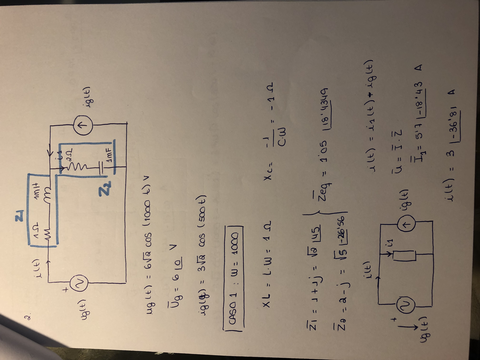 2
Z1
1Ω
1mH
i(t)
i1
2Ω
1mF
Z2
ig(t)
+
ug(t)
ug(t) = 6√2 cos (1000 t) V
Ūg = 6 |0 V
ig(t) = 3√2 cos (500t)
CASO 1 : W = 1000
XL = L·W = 1 Ω
Xc = -1/C·W = -1 Ω
Z̄1 = 1+1j = √2 |45
Z̄2 = 2-j = √5 |-26'56
Z̄eq = 1'05 |18'4349
i(t)
+
ug(t)
i1
ig(t)
i(t) = i1(t) + ig(t)
Ū = Ī · Z̄
Ī1 = 5'7 |-18'43 A
i(t) = 3 |-36'81 A